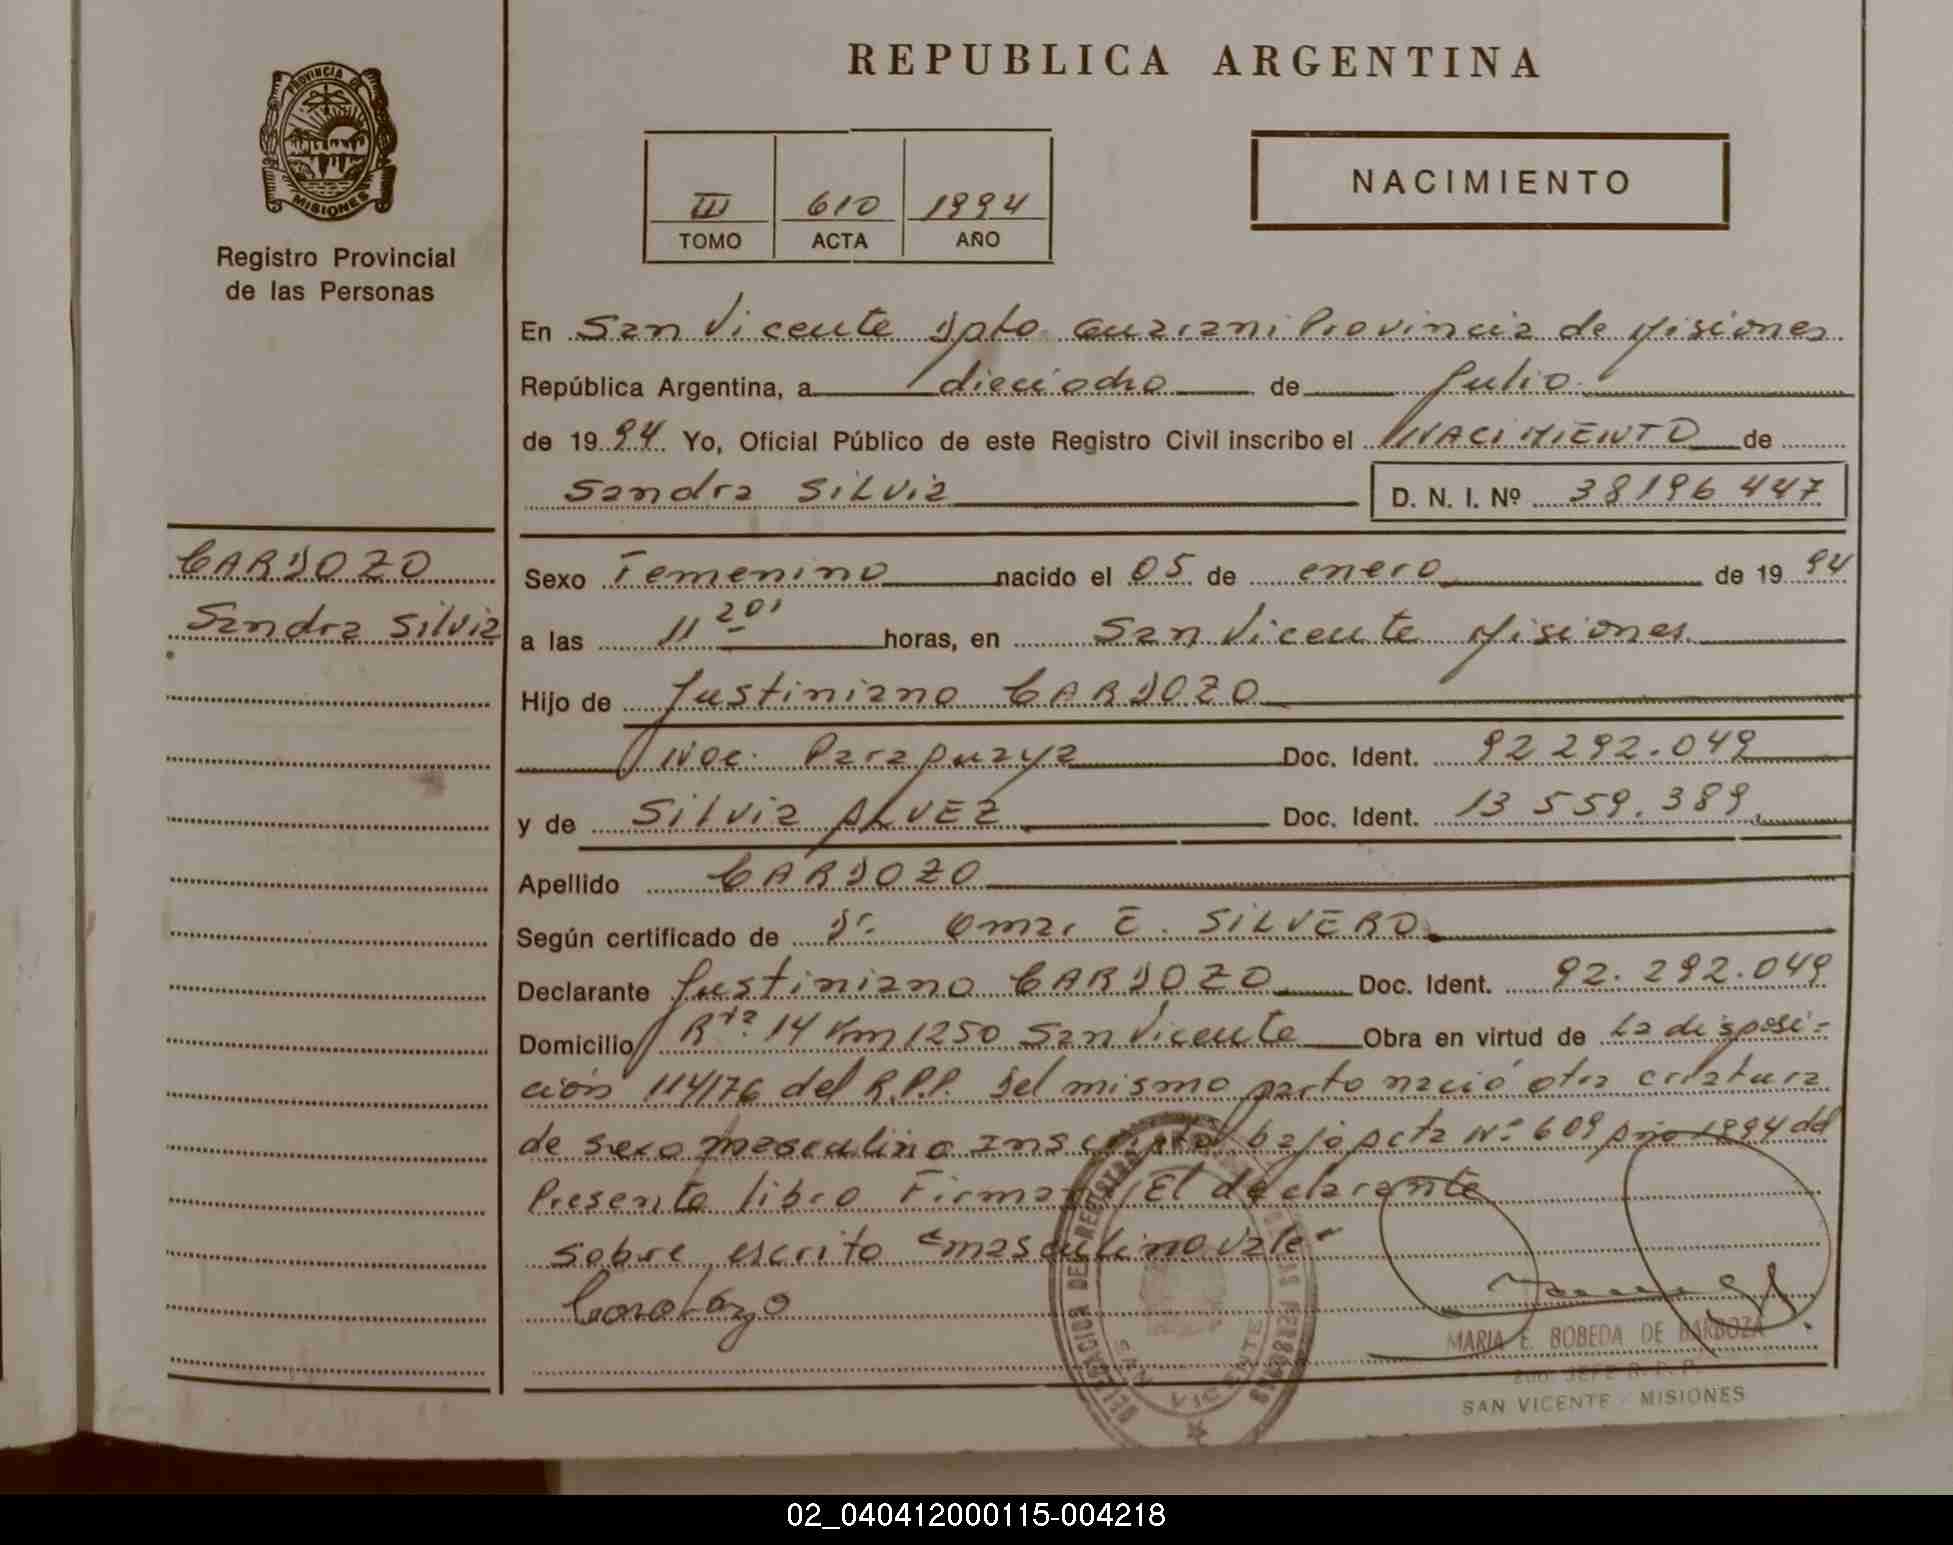 PROVINCIA DE
MISIONES
Registro Provincial
de las Personas
REPUBLICA ARGENTINA
III 610 1994
TOMO ACTA AÑO
NACIMIENTO
En San Vicente Dpto Guarani Provincia de Misiones
República Argentina, a dieciocho de Julio
de 1994 Yo, Oficial Público de este Registro Civil inscribo el NACIMIENTO de
Sandra Silvia D. N. I. Nº 38196447
CARDOZO
Sandra Silvia
Sexo Femenino nacido el 05 de enero de 1994
a las 11 20' horas, en San Vicente Misiones
Hijo de Justiniano CARDOZO
Nac. Paraguaya Doc. Ident. 92 292.049
y de Silvia ALVEZ Doc. Ident. 13 559.389
Apellido CARDOZO
Según certificado de Dr. Omar E. SILVERO
Declarante Justiniano CARDOZO Doc. Ident. 92.292.049
Domicilio Rta 14 Km 1250 San Vicente Obra en virtud de La disposi-
ción 114/76 del R.P.P. Del mismo parto nació otra criatura
de sexo masculino Inscripta bajo acta Nº 609 año 1994 del
Presente libro Firma El declarante
sobre escrito "masculino vale"
Cardozo
DELEGACION DEL REGISTRO DE LAS PERSONAS
SAN VICENTE
MARIA E. BOBEDA DE BARBOZA
JEFE R. P. P.
SAN VICENTE - MISIONES
02_040412000115-004218